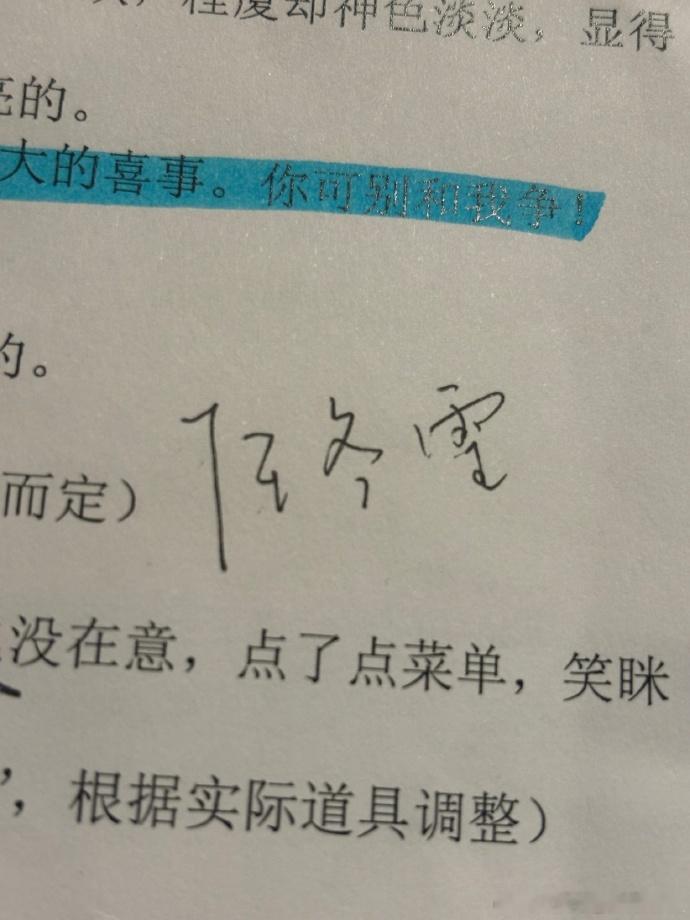 程厦却神色淡淡，显得
亮的。
大的喜事。你可别和我争！
的。
而定）
没在意，点了点菜单，笑眯
”，根据实际道具调整）